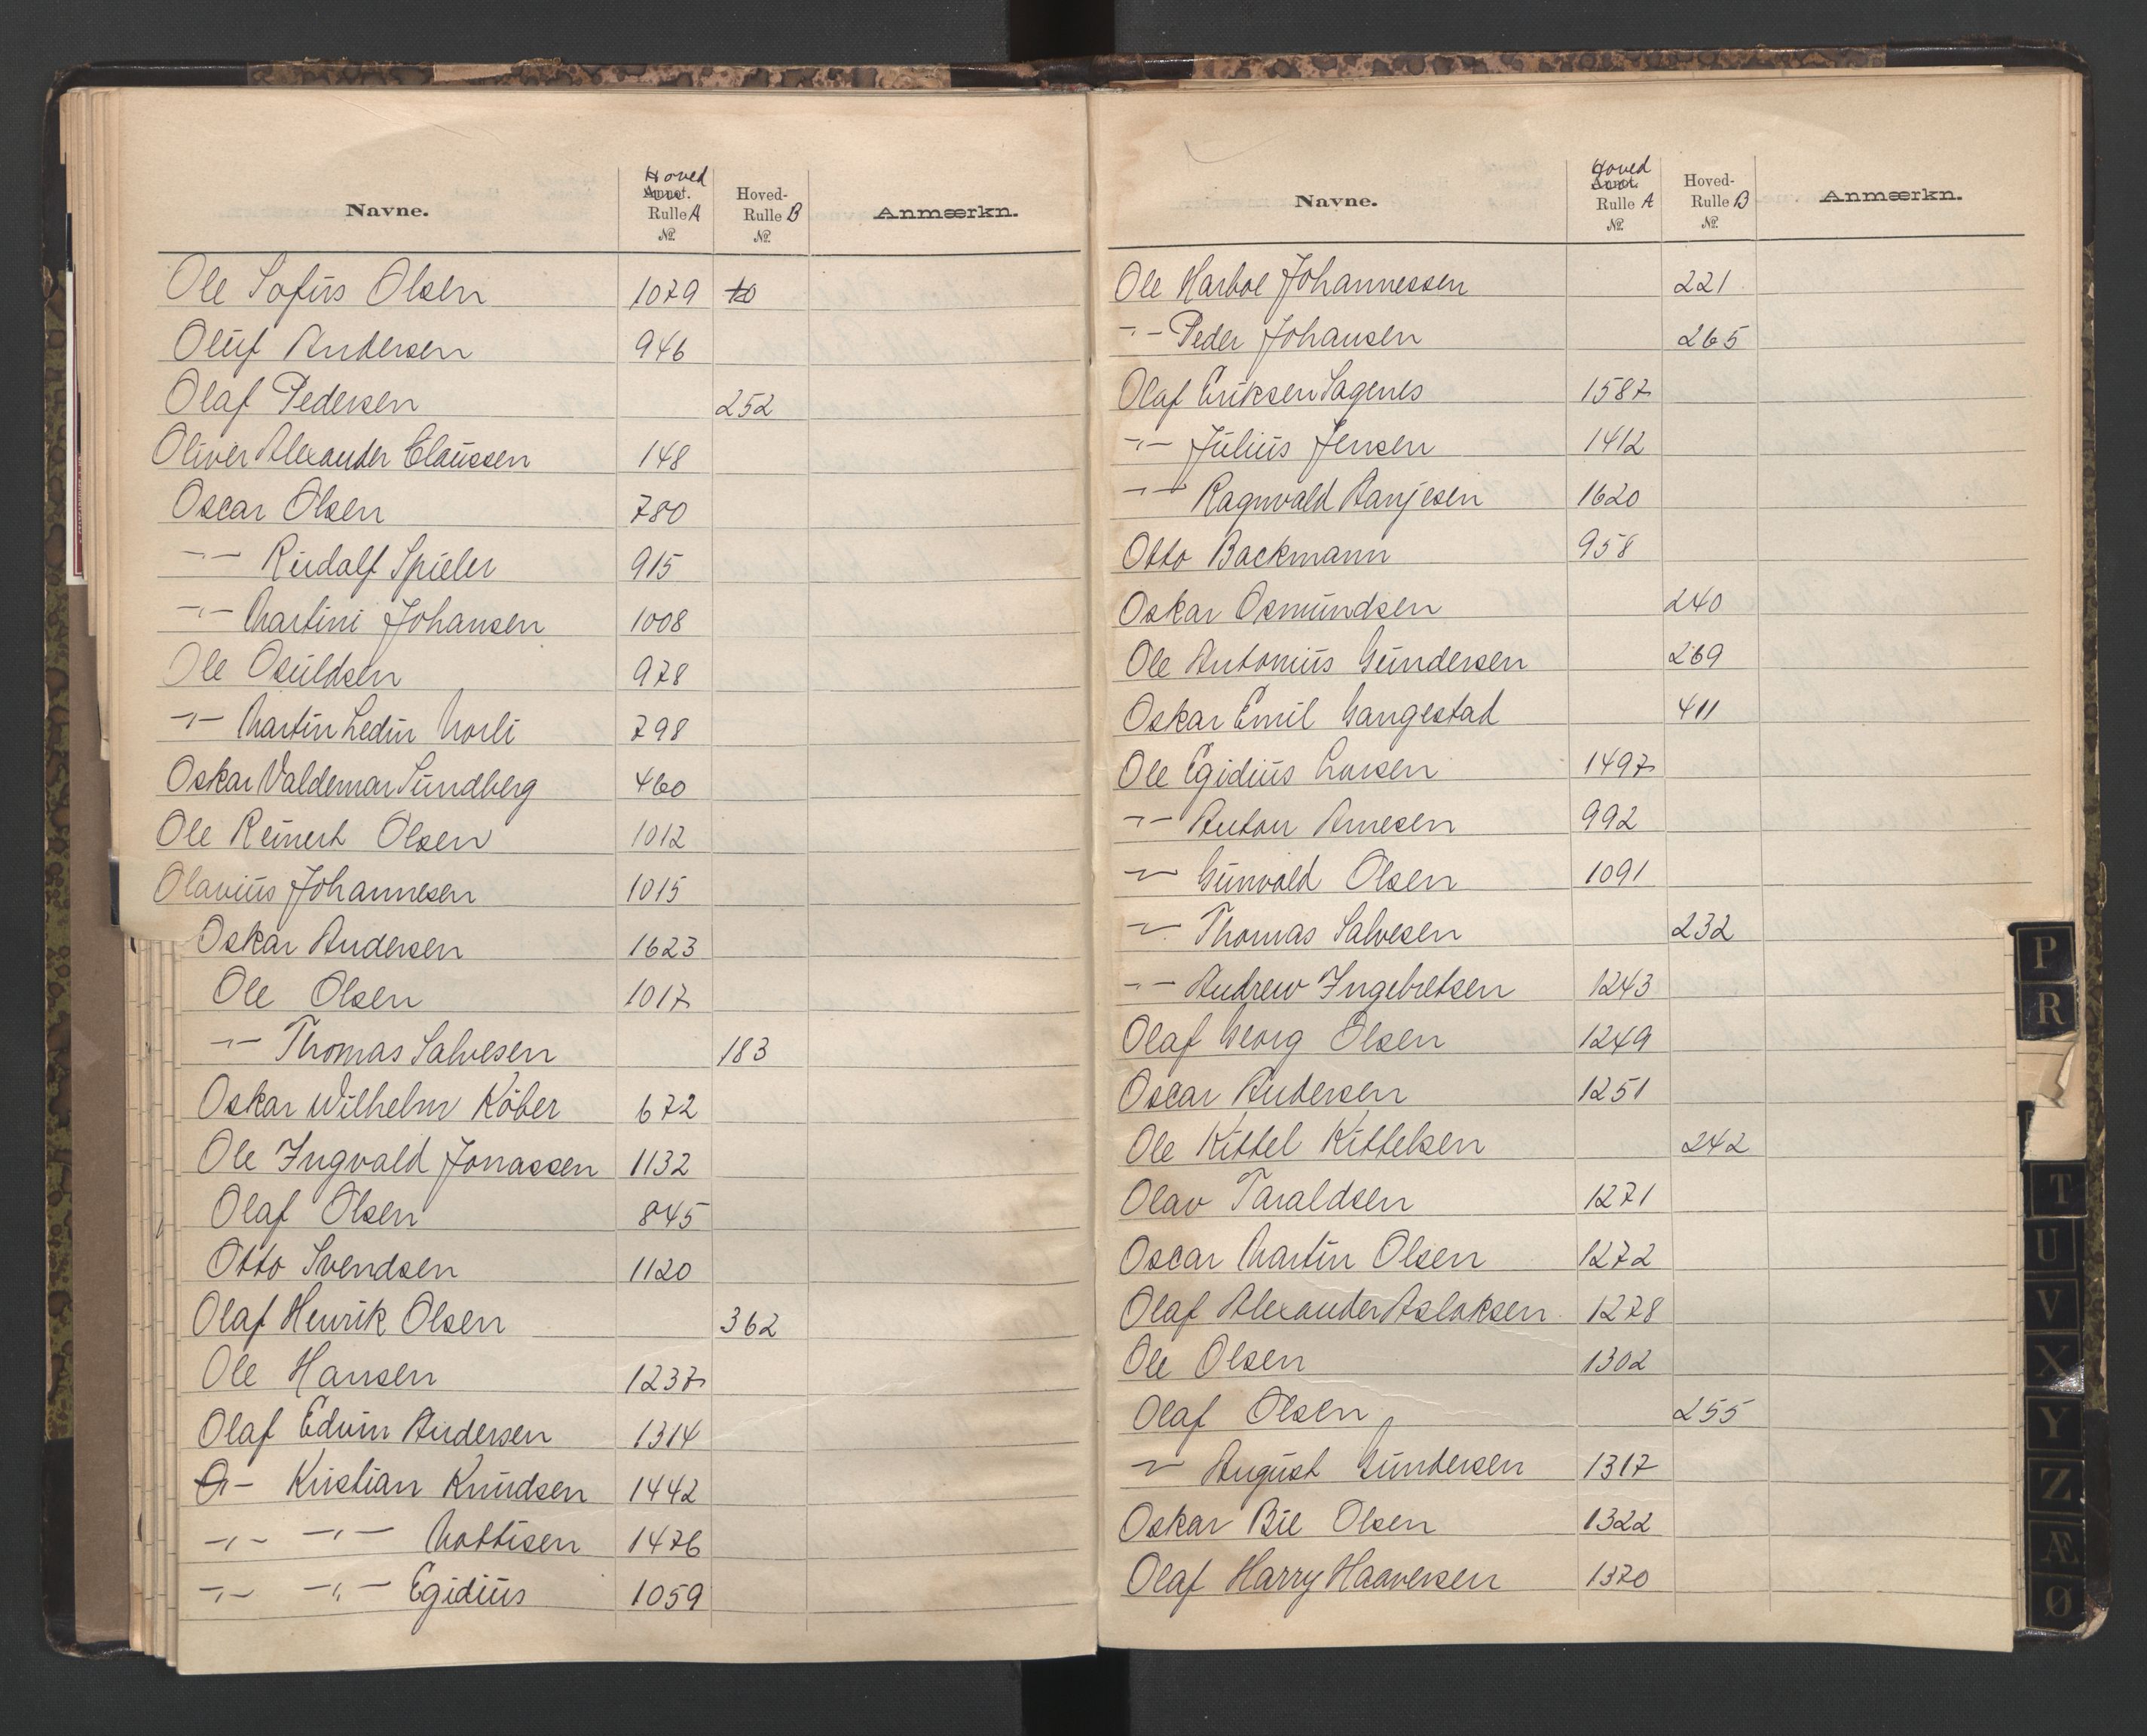 Navne. Hoved Annot. Rulle A № Hoved-Rulle B № Anmærkn.
Ole Sofus Olsen 1079 10
Oluf Andersen 946
Olaf Pedersen 252
Oliver Alexander Claussen 148
Oscar Olsen 780
-"- Rudolf Spieler 915
-"- Martini Johansen 1008
Ole Osuldsen 978
-"- Martin Ledin Norli 798
Oskar Valdemar Sundberg 460
Ole Reinert Olsen 1012
Olavius Johannesen 1015
Oskar Andersen 1623
Ole Olsen 1017
-"- Thomas Salvesen 183
Oskar Wilhelm Köber 672
Ole Ingvald Jonassen 1132
Olaf Olsen 845
Otto Svendsen 1120
Olaf Henrik Olsen 362
Ole Hansen 1237
Olaf Edvin Andersen 1314
-"- Kristian Knudsen 1442
-"- -"- Mattisen 1476
-"- -"- Egidius 1059
Navne. Hoved Annot. Rulle A № Hoved-Rulle B № Anmærkn.
Ole Harboe Johannessen 221
-"- Peder Johansen 265
Olaf Eriksen Sagenes 1587
-"- Julius Jensen 1412
-"- Ragnvald Aanjesen 1620
Otto Backmann 958
Oskar Osmundsen 240
Ole Antonius Gundersen 269
Oskar Emil Gangestad 411
Ole Egidius Larsen 1497
-"- Anton Arnesen 992
-"- Gunvald Olsen 1091
-"- Thomas Salvesen 232
-"- Andrew Ingebretsen 1243
Olaf Georg Olsen 1249
Oscar Andersen 1251
Ole Kittel Kittelsen 242
Olav Taraldsen 1271
Oscar Martin Olsen 1272
Olaf Alexander Aslaksen 1278
Ole Olsen 1302
Olaf Olsen 255
-"- August Gundersen 1317
Oskar Bie Olsen 1322
Olaf Harry Haaversen 1370
P
R
T
U
V
X
Y
Z
Æ
Ø